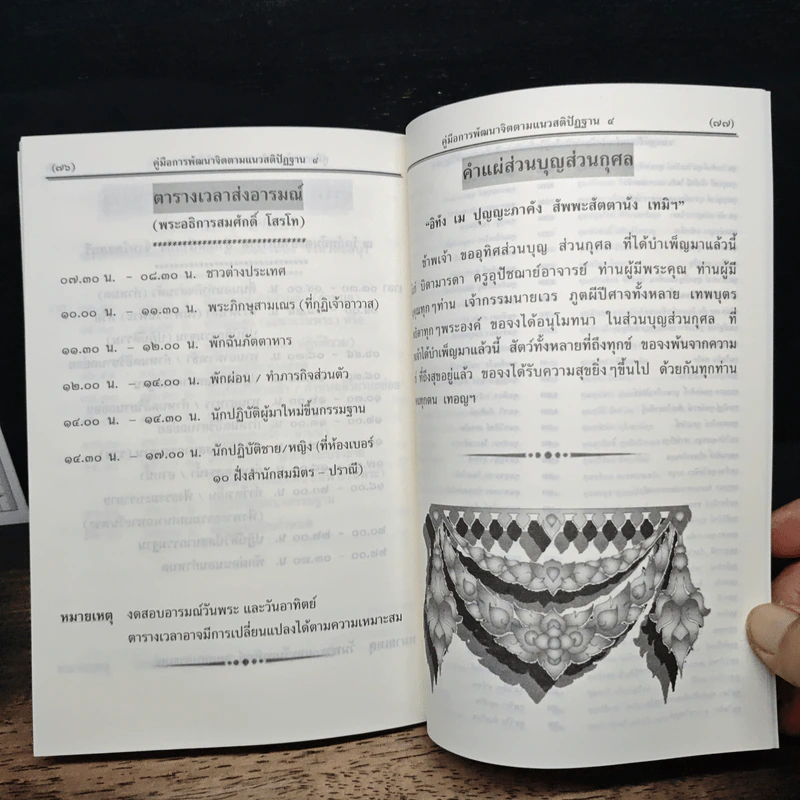 (๗๖) คู่มือการพัฒนาจิตตามแนวสติปัฏฐาน ๔
ตารางเวลาส่งอารมณ์
(พระอธิการสมศักดิ์ โสรโท)
๐๗.๓๐ น. – ๐๘.๓๐ น. ชาวต่างประเทศ
๑๐.๐๐ น. – ๑๑.๓๐ น. พระภิกษุสามเณร (ที่กุฏิเจ้าอาวาส)
๑๑.๓๐ น. – ๑๒.๐๐ น. พักฉันภัตตาหาร
๑๒.๐๐ น. – ๑๔.๐๐ น. พักผ่อน / ทำภารกิจส่วนตัว
๑๔.๐๐ น. – ๑๔.๓๐ น. นักปฏิบัติผู้มาใหม่ขึ้นกรรมฐาน
๑๔.๓๐ น. – ๑๗.๐๐ น. นักปฏิบัติชาย/หญิง (ที่ห้องเบอร์
๑๐ ฝั่งสำนักสมมิตร – ปราณี)
หมายเหตุ งดสอบอารมณ์วันพระ และวันอาทิตย์
ตารางเวลาอาจมีการเปลี่ยนแปลงได้ตามความเหมาะสม
คู่มือการพัฒนาจิตตามแนวสติปัฏฐาน ๔ (๗๗)
คำแผ่ส่วนบุญส่วนกุศล
"อิทัง เม ปุญญะภาคัง สัพพะสัตตานัง เทมิฯ"
ข้าพเจ้า ขออุทิศส่วนบุญ ส่วนกุศล ที่ได้บำเพ็ญมาแล้วนี้
บิดามารดา ครูอุปัชฌาย์อาจารย์ ท่านผู้มีพระคุณ ท่านผู้มี
ทุกๆท่าน เจ้ากรรมนายเวร ภูตผีปีศาจทั้งหลาย เทพบุตร
ทุกๆพระองค์ ขอจงได้อนุโมทนา ในส่วนบุญส่วนกุศล ที่
ได้บำเพ็ญมาแล้วนี้ สัตว์ทั้งหลายที่ถึงทุกข์ ขอจงพ้นจากความ
ที่ถึงสุขอยู่แล้ว ขอจงได้รับความสุขยิ่งๆขึ้นไป ด้วยกันทุกท่าน
ทุกตน เทอญฯ